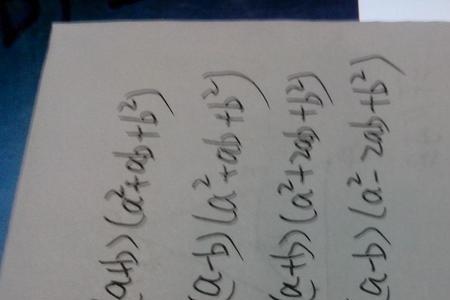 (a+b)(a²+ab+b²)
(a-b)(a²+ab+b²)
(a+b)(a²+2ab+b²)
(a-b)(a²-2ab+b²)